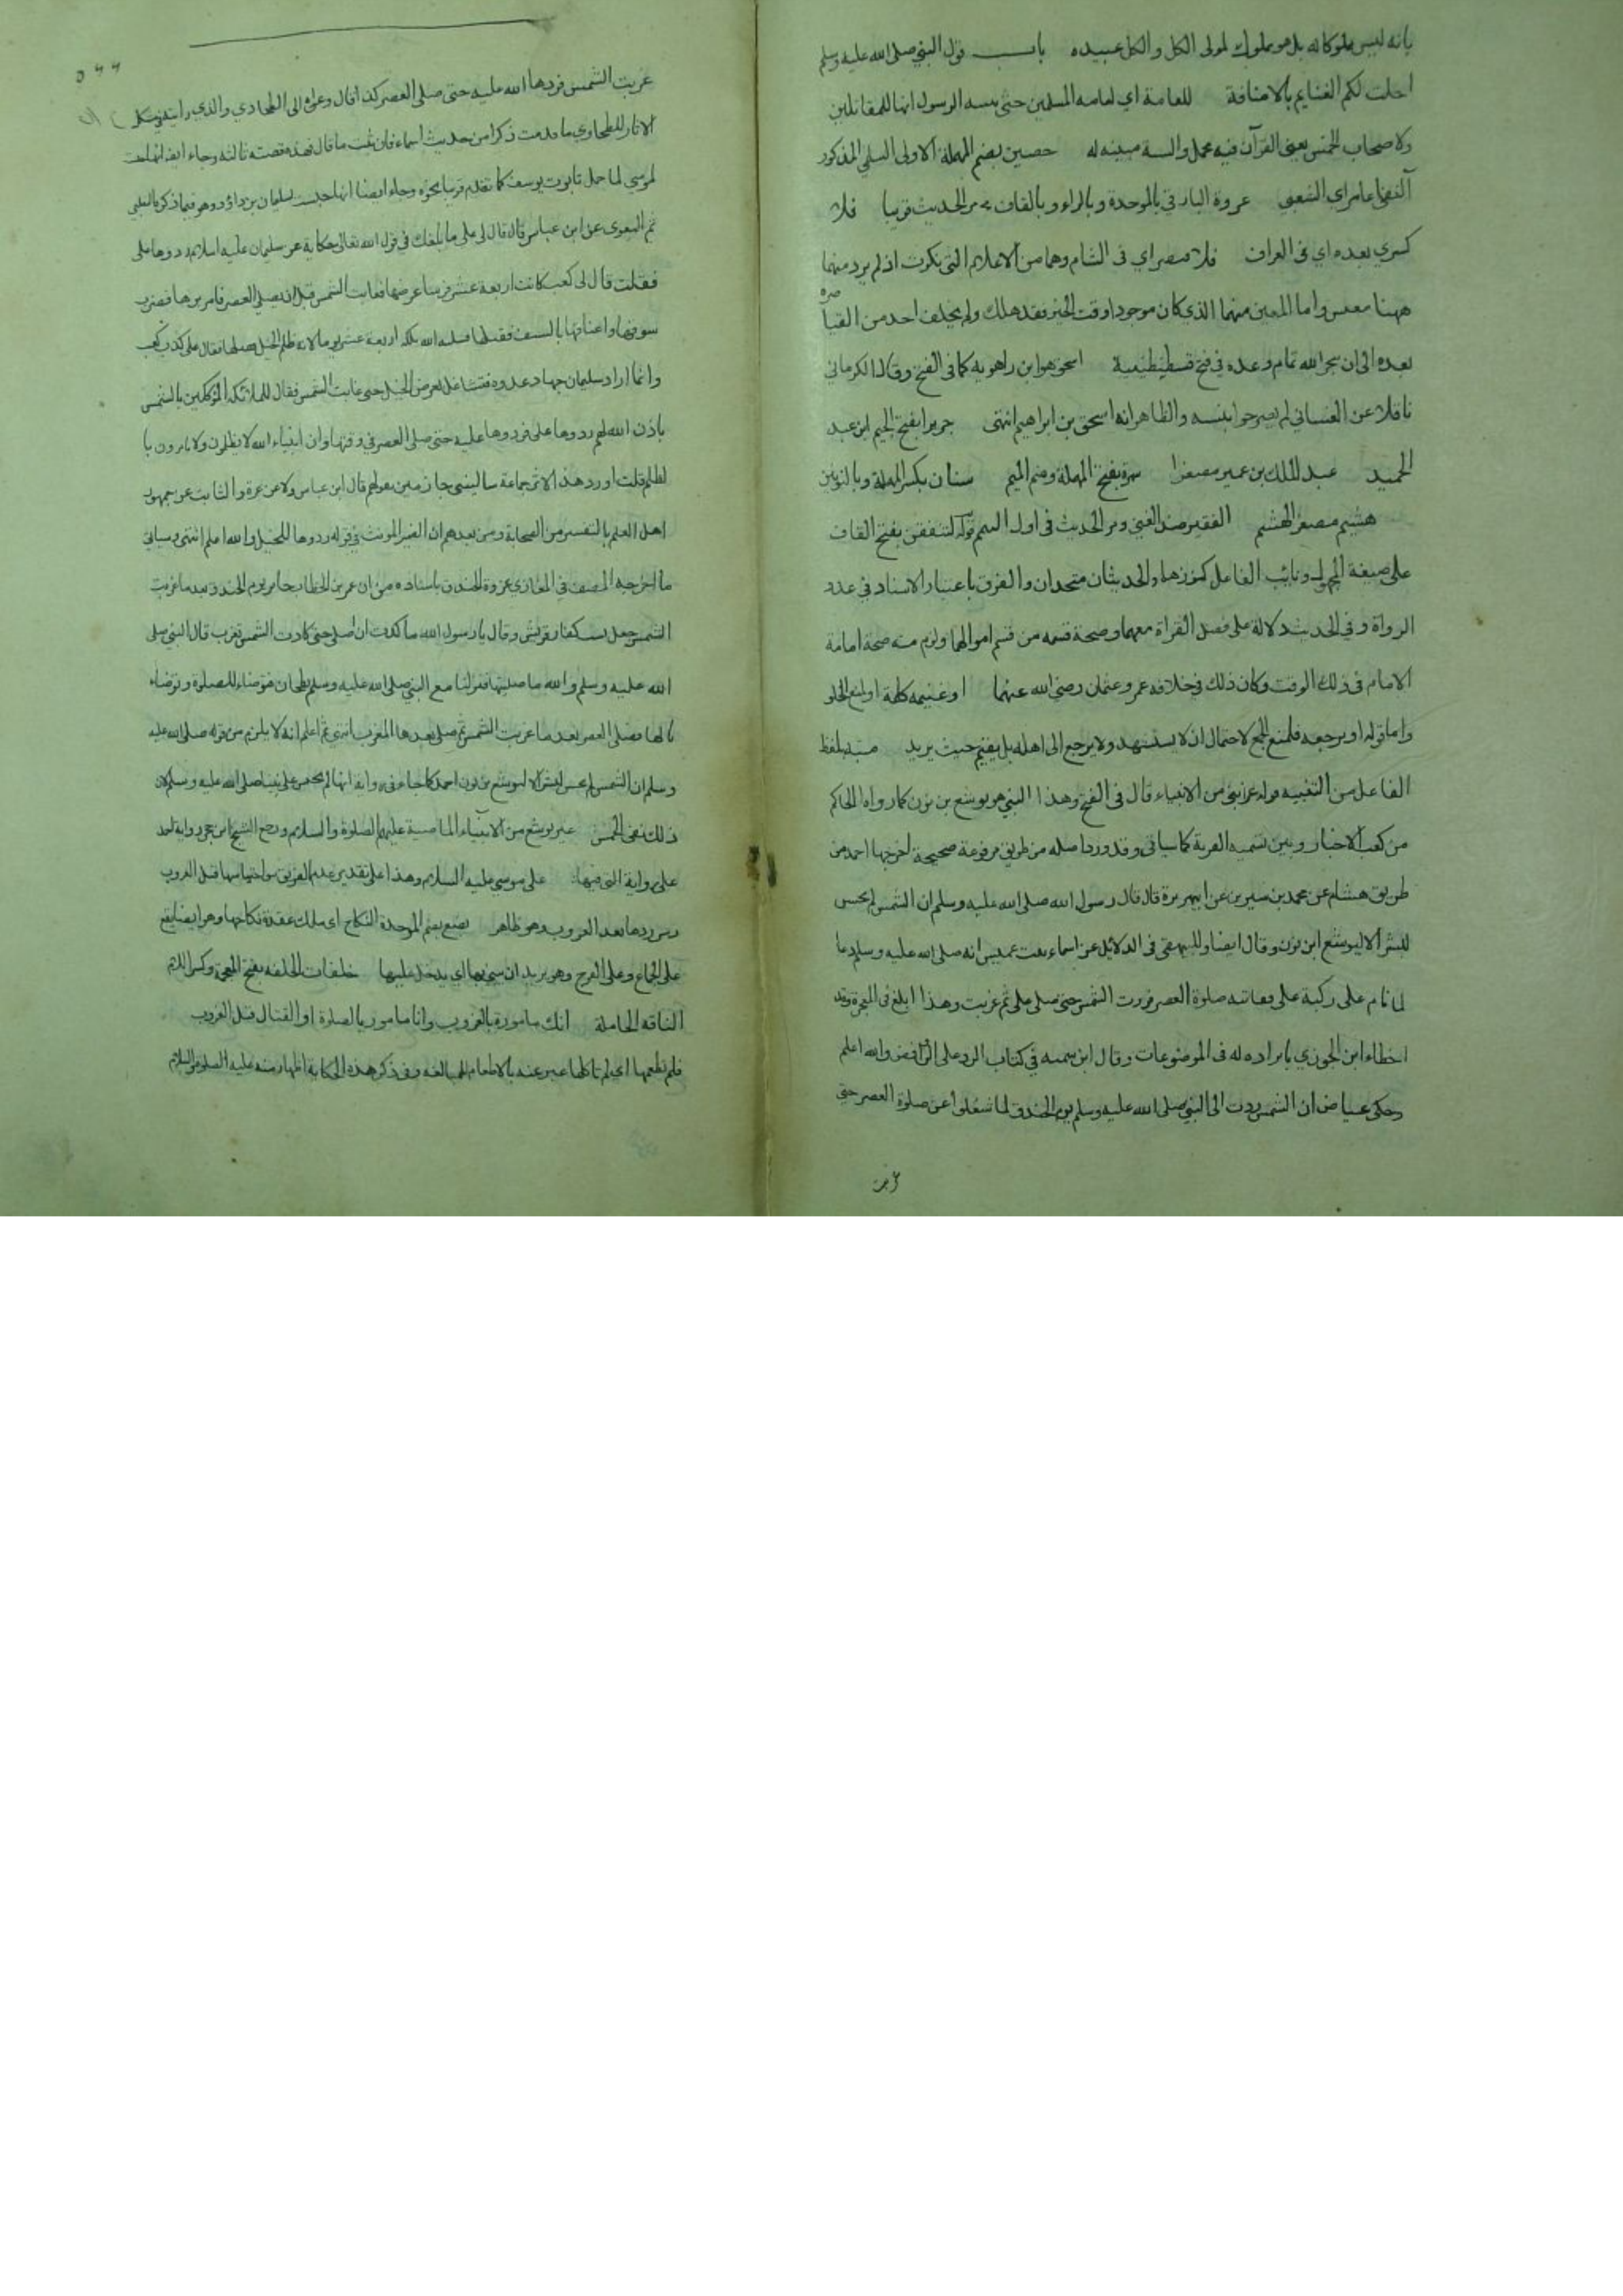 بانه ليس ملوكا له بل هو مملوك لمولى الكل والكل عبيده باب قول النبي صلى الله عليه وسلم
احلت لكم الغنايم بالاضافة للعامة اي لعامه المسلمين حتى يبينه الرسول انها للمقاتلين
ولاصحاب الخمس يعني القرآن فيه مجمل والسنة مبينه له حصين بضم المهملة الاولى السلمي المذكور
آنفا عامر اي الشعبي عروة البارقي بالموحدة وبالراء وبالقاف مر الحديث قريبا فلا
كسرى بعده اي في العراق فلا قيصر اي في الشام وهما من الاعلام التي نكرت اذ لم يرد منهما
ههنا معين واما المعين منهما الذي كان موجودا وقت الخبر فقد هلك ولم يخلف احد من القياصره
بعده الى ان نجز الله تمام وعده في فتح قسطنطينية اسحق هو ابن راهويه كما في الفتح وقال الكرماني
ناقلا عن الغساني لم يصرحوا بنسبه والظاهر انه اسحق بن ابراهيم انتهى جريرا بفتح الجيم ابن عبد
الحميد عبد الملك بن عمير مصغرا سمرة بفتح المهملة وضم الميم سنان بكسر المهملة وبالنونين
هشيم مصغر الهشم الفقير ضد الغني ومر الحديث في اول التيمم قوله لتنفقن بفتح القاف
على صيغة المجهول ونايب الفاعل كنوزهما والحديثان متحدان والفرق باعتبار الاسناد في عدد
الرواة وفي الحديث دلالة على فضل القراة معهما وصحة قسمه من قسم اموالهما ولزم منه صحة امامة
الامام في ذلك الوقت وكان ذلك في خلافة عمر وعثمان رضي الله عنهما او غنيمه كلمة او لمنع الخلو
واما قوله او يرجعه فلمنع الجمع لاحتمال ان لا يستشهد ولا يرجع الى اهله بل يقيم حيث يريد منبه بلفظ
الفاعل من التنبيه قوله غزا نبي من الانبياء قال في الفتح وهذا النبي هو يوشع بن نون كما رواه الحاكم
من كعب الاخبار وبين تسميه القرية كما سياتي وقد ورد اصله من طريق مرفوعة صحيحة اخرجها احمد من
طريق هشام عن محمد بن سيرين عن ابي هريرة قال قال رسول الله صلى الله عليه وسلم ان الشمس لم تحبس
لبشر الا ليوشع ابن نون وقال ايضا وللبيهقي في الدلائل عن اسماء بنت عميس انه صلى الله عليه وسلم دعا
لما نام على ركبة علي ففاتته صلوة العصر فردت الشمس حتى صلى علي ثم غربت وهذا ابلغ في المعجزة وقد
اخطاء ابن الجوزي بايراده له في الموضوعات وقال ابن تيميه في كتاب الرد على الرافض والله اعلم
وحكى عياض ان الشمس ردت الى النبي صلى الله عليه وسلم يوم الخندق لما شغلوا عن صلوة العصر حتى
غربت
٥٤٤
غربت الشمس فردها الله عليه حتى صلى العصر كذا قال وعزاه الى الطحاوي والذي رايته في مشكل
الاثار للطحاوي ما قدمت ذكرا من حديث اسماء فان ثبت ما قال فهذه قصته ثالثه وجاء ايضا انها حبست
لموسى لما حمل تابوت يوسف كما تقدم قريبا نحوه وجاء ايضا انها حبست لسليمان بن داؤد وهو فيما ذكره الثعلبي
ثم البغوي عن ابن عباس قال قال لي علي ما بلغك في قول الله تعالى حكاية عن سليمان عليه السلام ردوها علي
فقلت قال لي كعب كانت اربعة عشر فرسا عرضها فغابت الشمس قبل ان يصلي العصر فامر بردها فضرب
سوقها واعناقها بالسيف فقتلها فسلبه الله ملكه اربعة عشر يوما لانه ظلم الخيل بقتلها فقال علي كذب كعب
وانما اراد سليمان جهاد عدوه فتشاغل بعرض الخيل حتى غابت الشمس فقال للملائكة الموكلين بالشمس
باذن الله لهم ردوها علي فردوها عليه حتى صلى العصر في وقتها وان انبياء الله لا يظلمون ولا يامرون با
لظلم قلت اورد هذا الاثر جماعة ساكتين جازمين بقولهم قال ابن عباس والثابت عن جمهور
اهل العلم بالتفسير من الصحابة ومن بعدهم ان الضمير المونث في قوله ردوها للخيل والله اعلم انتهى وسياتي
ما اخرجه المصنف في المغازي غزوة الخندق باسناده من ان عمر بن الخطاب جاء يوم الخندق بعد ما غربت
الشمس جعل يسب كفار قريش وقال يا رسول الله ما كدت ان اصلي حتى كادت الشمس تغرب قال النبي صلى
الله عليه وسلم والله ما صليتها فنزلنا مع النبي صلى الله عليه وسلم بطحان فتوضاء للصلوة وتوضاء
نا لها فصلى العصر بعد ما غربت الشمس ثم صلى بعدها المغرب انتهى ثم اعلم انه لا يلزم من قوله صلى الله عليه
وسلم ان الشمس لم تحبس لبشر الا ليوشع بن نون احمد كما جاء في رواية انها لم تحبس على نبينا صلى الله عليه وسلم لان
ذلك نفي الحبس غير يوشع من الانبياء الماضية عليهم الصلوة والسلام ورجح الشيخ ابن حجر رواية احمد
على رواية التي فيها على موسى عليه السلام وهذا على تقدير عدم الفرق بين احتباسها قبل الغروب
وبين ردها بعد الغروب وهو ظاهر بضع بضم الموحدة النكاح اي ملك عقدة نكاحها وهو ايضا يقع
على الجماع وعلى الفرج وهو يريد ان يبني بها اي يدخل عليها خلفات الخلفه بفتح المعجمة وكسر اللام
الناقه الحاملة انك مامورة بالغروب وانا مامور بالصلوة او القتال قبل الغروب
فلم تطعمها اي لم تاكلها عبر عنه بالاطعام للمبالغه وفي ذكر هذه الحكاية اظهار منه عليه الصلوة والسلام